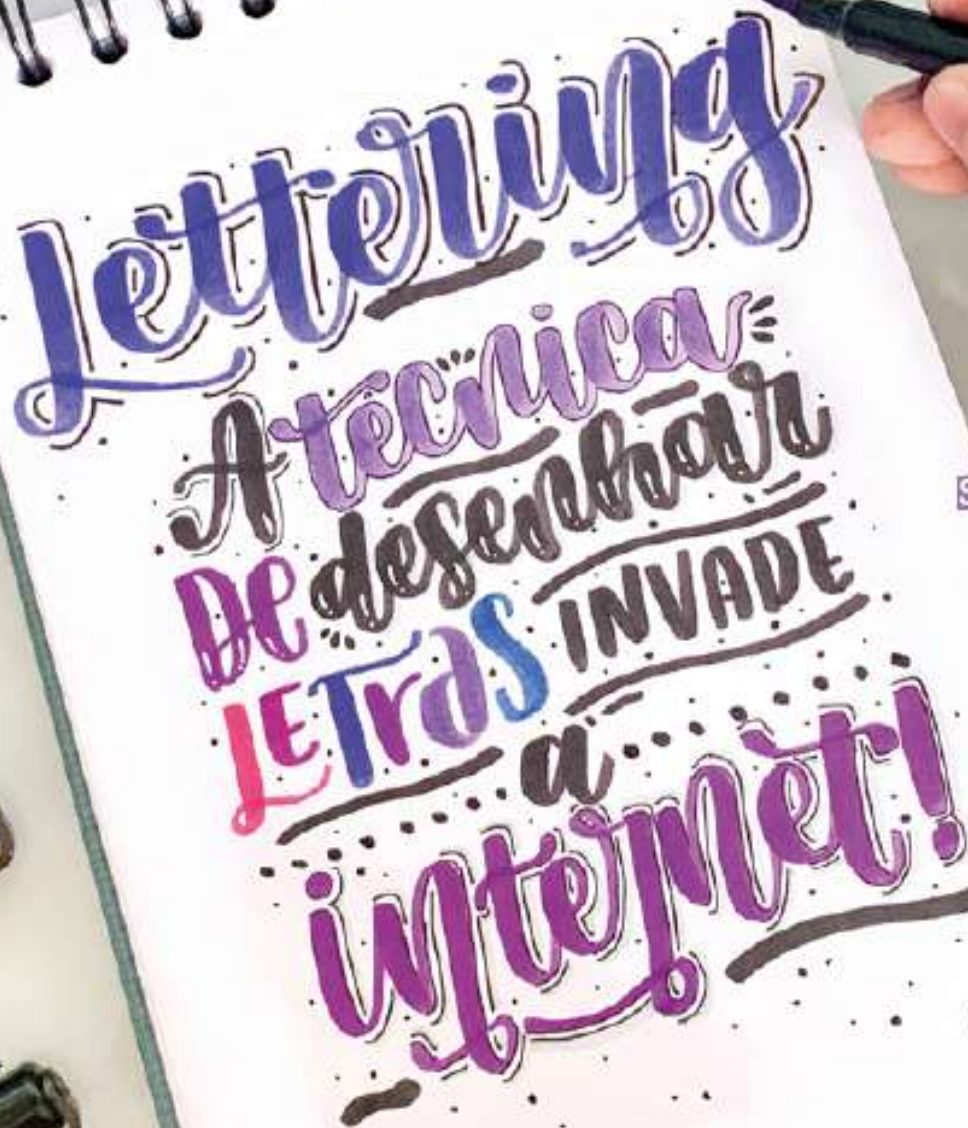 Lettering
A técnica
De desenhar
LETraS INVADE
a
internet!
S